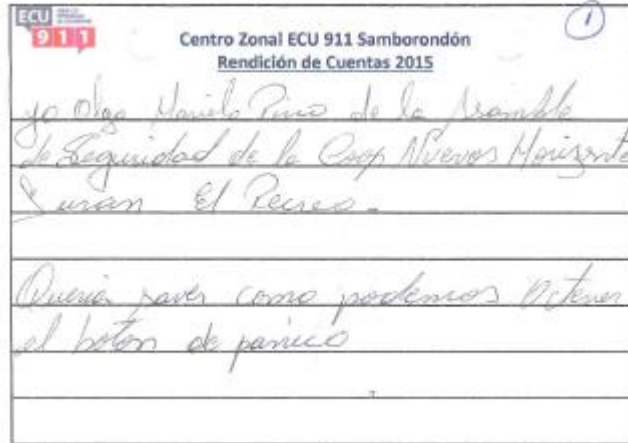 ECU
911
1
Centro Zonal ECU 911 Samborondón
Rendición de Cuentas 2015
yo Olga Mariela Pino de la Asamble
de Seguridad de la Coop Nuevos Horizonte
Duran El Recreo
Queria saver como podemos Octener
el boton de panico